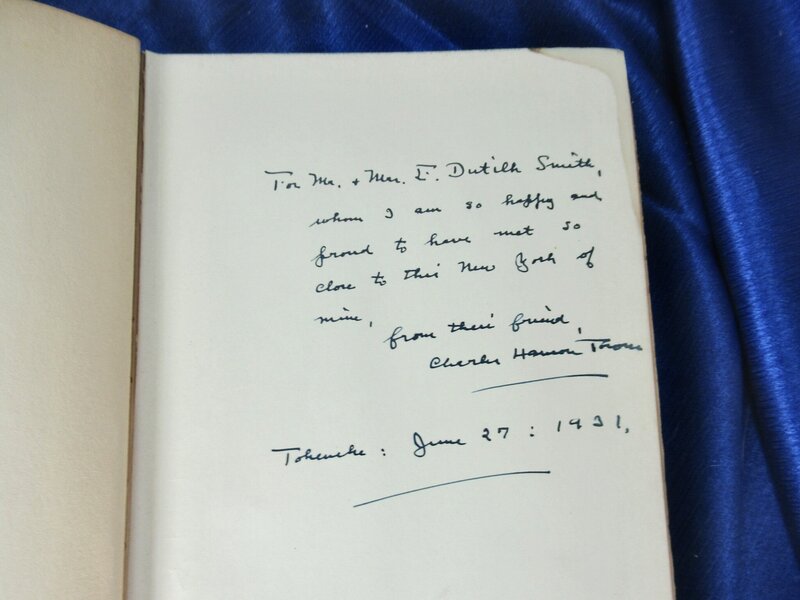 For Mr. + Mrs. E. Dutilh Smith,
whom I am so happy and
proud to have met so
close to this New York of
mine,
from their friend,
Charles Hanson Towne
Tokeneke: June 27: 1931.